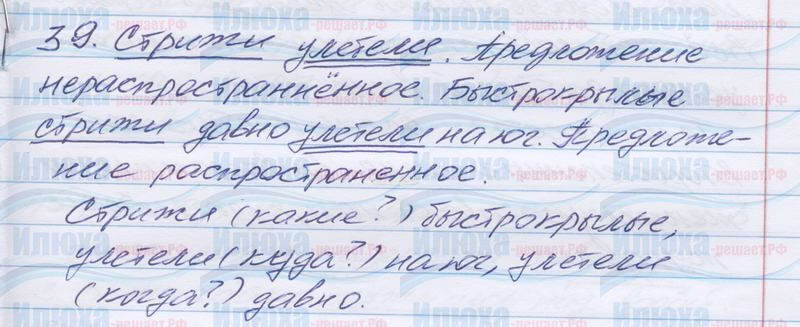 39. Стрижи улетели. Предложение
нераспространнённое. Быстрокрылые
стрижи давно улетели на юг. Предложе-
ние распространенное.
Стрижи (какие?) быстрокрылые,
улетели (куда?) на юг, улетели
(когда?) давно.